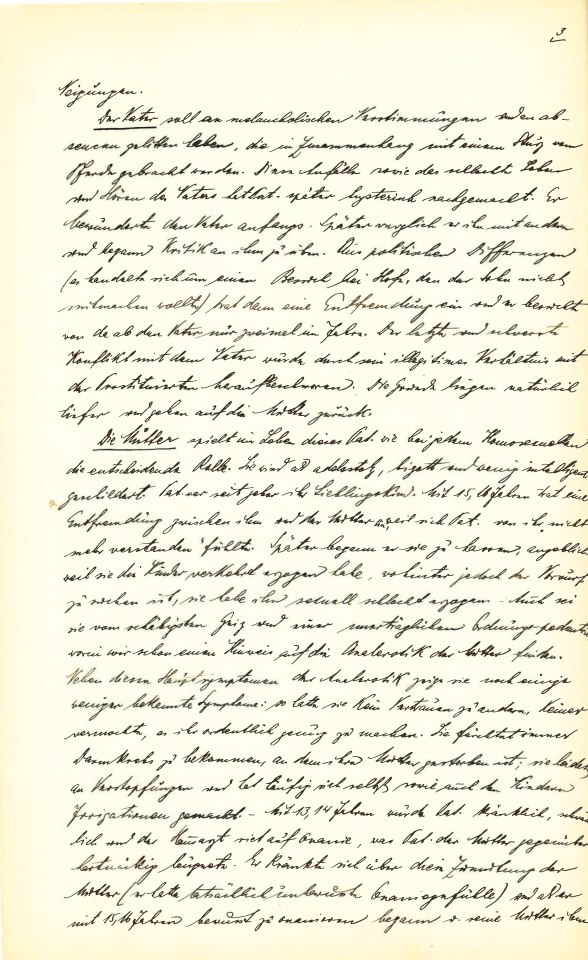 3
Neigungen.
Der Vater soll an melancholischen Verstimmungen und an ab-
sencen gelitten haben, die in Zusammenhang mit einem Sturz vom
Pferde gebracht werden. Diese Anfälle sowie das schlechte Sehen
und Hören des Vaters hat Pat. später hysterisch nachgemacht. Er
bewunderte den Vater anfangs. Später verglich er ihn mit andern
und begann Kritik an ihm zu üben. Aus politischen Differenzen
(es handelte sich um einen Besuch bei Hofe, den der Sohn nicht
mitmachen wollte) trat dann eine Entfremdung ein und er besucht
von da ab den Vater nur zweimal im Jahre. Der letzte und schwerste
Konflikt mit dem Vater wurde durch sein illegitimes Verhältnis mit
der Prostituierten heraufbeschworen. Die Gründe liegen natürlich
tiefer und gehen auf die Mutter zurück.
Die Mutter spielt im Leben dieses Pat. wie bei jedem Homosexuellen
die entscheidende Rolle. Sie wird als adelsstolz, bigott und wenig intelligent
geschildert. Pat. war seit jeher ihr Lieblingskind. Mit 15, 16 Jahren trat eine
Entfremdung zwischen ihm und der Mutter ein, weil sich Pat. von ihr "nicht
mehr verstanden" fühlte. Später begann er sie zu hassen, angeblich
weil sie die Kinder verkehrt erzogen habe, wohinter jedoch der Vorwurf
zu suchen ist, sie habe ihn sexuell schlecht erzogen. – Auch sei
sie vom schäbigsten Geiz und einer unerträglichen Ordnungs-pedanterie
worin wir schon einen Hinweis auf die Analerotik der Mutter finden.
Neben diesen Hauptsymptomen der Analerotik zeige sie noch einige
weniger bekannte Symptome: so hatte sie kein Vertrauen zu andern, keiner
vermochte, es ihr ordentlich genug zu machen. Sie fürchtet immer
Darmkrebs zu bekommen, an dem ihre Mutter gestorben ist; sie leidet
an Verstopfungen und hat häufig sich selbst sowie auch den Kindern
Irrigationen gemacht. – Mit 13, 14 Jahren wurde Pat. kränklich,
lich und der Hausarzt riet auf Onanie, was Pat. der Mutter gegenüber
hartnäckig leugnete. Er kränkte sich über diese Zumutung der
Mutter (er hatte tatsächlich unbewusste Onaniegefühle) und als er
mit 15, 16 Jahren bewusst zu onanieren begann seine Mutter ihm